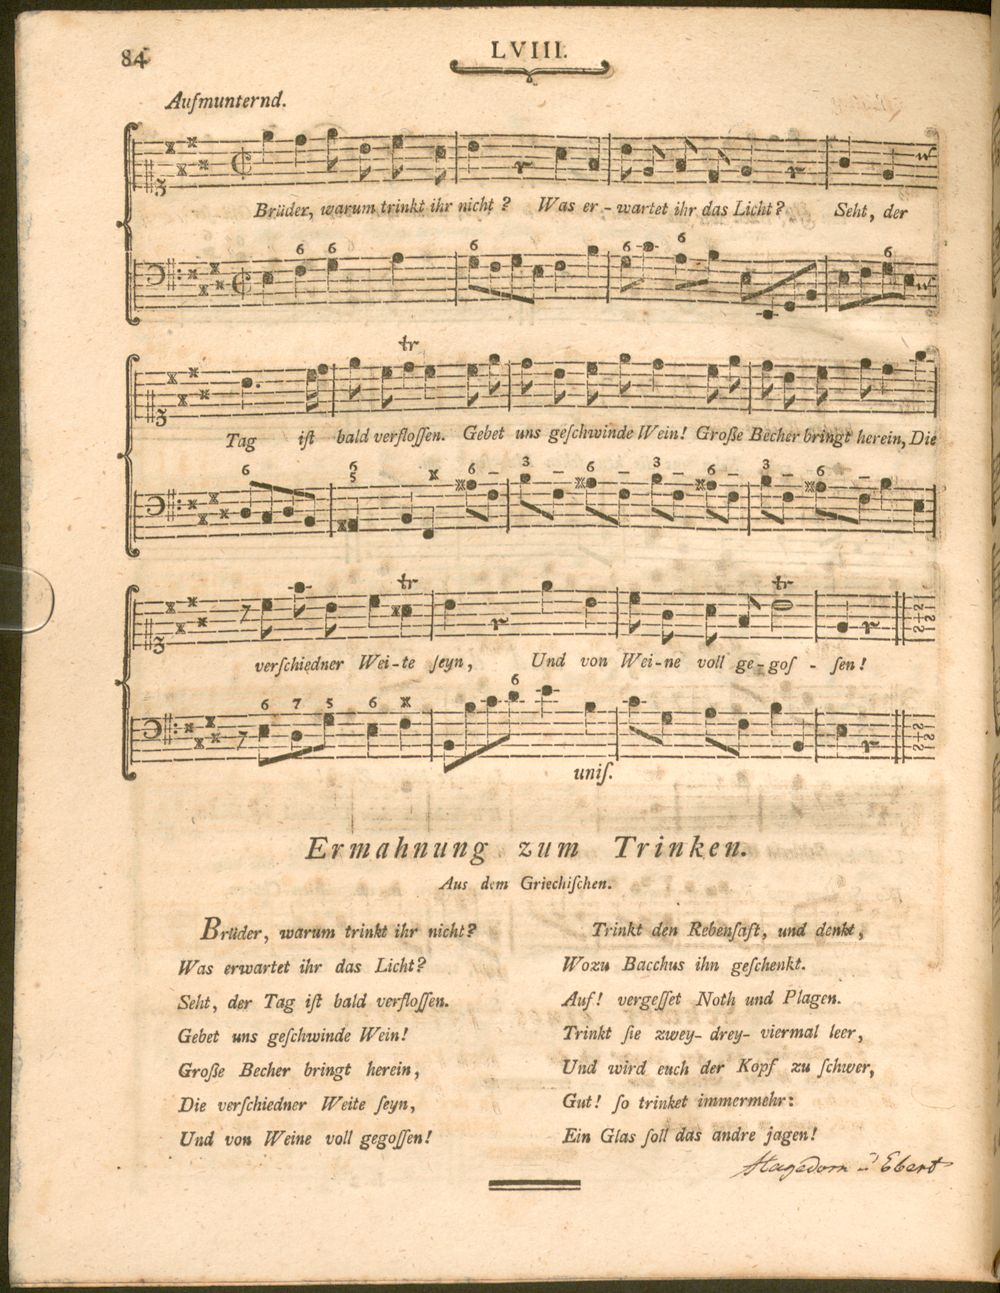 84
LVIII.
Aufmunternd.
Brüder, warum trinkt ihr nicht? Was er-wartet ihr das Licht? Seht, der
6 6 6 6 6 6 6
tr
Tag ist bald verfloſſen. Gebet uns geſchwinde Wein! Große Becher bringt herein, Die
6 6 5 6 3 6 3 6 3 6
tr tr
verſchiedner Wei-te ſeyn, Und von Wei-ne voll ge-goſ-ſen!
6 7 5 6 6
uniſ.
Ermahnung zum Trinken.
Aus dem Griechiſchen.
Brüder, warum trinkt ihr nicht?
Was erwartet ihr das Licht?
Seht, der Tag iſt bald verfloſſen.
Gebet uns geſchwinde Wein!
Große Becher bringt herein,
Die verſchiedner Weite ſeyn,
Und von Weine voll gegoſſen!
Trinkt den Rebenſaft, und denkt,
Wozu Bacchus ihn geſchenkt.
Auf! vergeſſet Noth und Plagen.
Trinkt ſie zwey- drey- viermal leer,
Und wird euch der Kopf zu ſchwer,
Gut! ſo trinket immermehr:
Ein Glas ſoll das andre jagen!
Hagedorn u Ebert